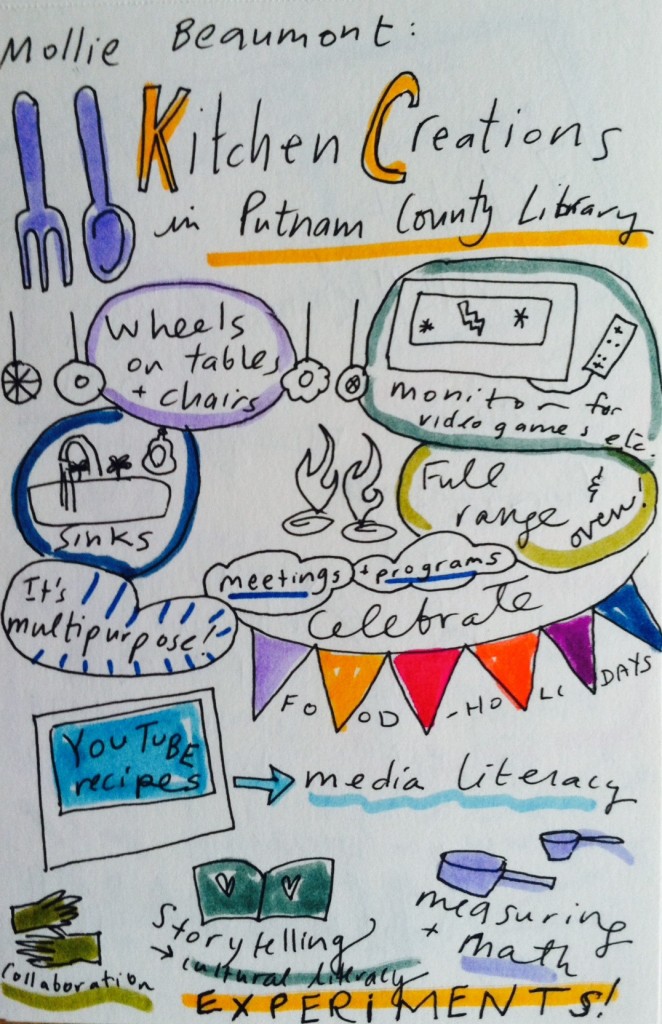 Mollie Beaumont:
Kitchen Creations
in Putnam County Library
Wheels
on tables
+ chairs
monitor for
video games etc.
sinks
Full
range
& oven!
meetings + programs
It's
multipurpose!
Celebrate
FOOD-HOLIDAYS
YouTube
recipes
media literacy
measuring
+ math
Storytelling
→ cultural literacy
Collaboration
EXPERIMENTS!